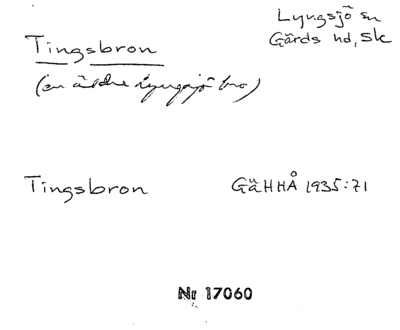 Lyngsjö sn
Tingsbron
Gärds hd, Sk
(en äldre Lyngsjö bro)
Tingsbron GäHHÅ 1935:71
Nr 17060